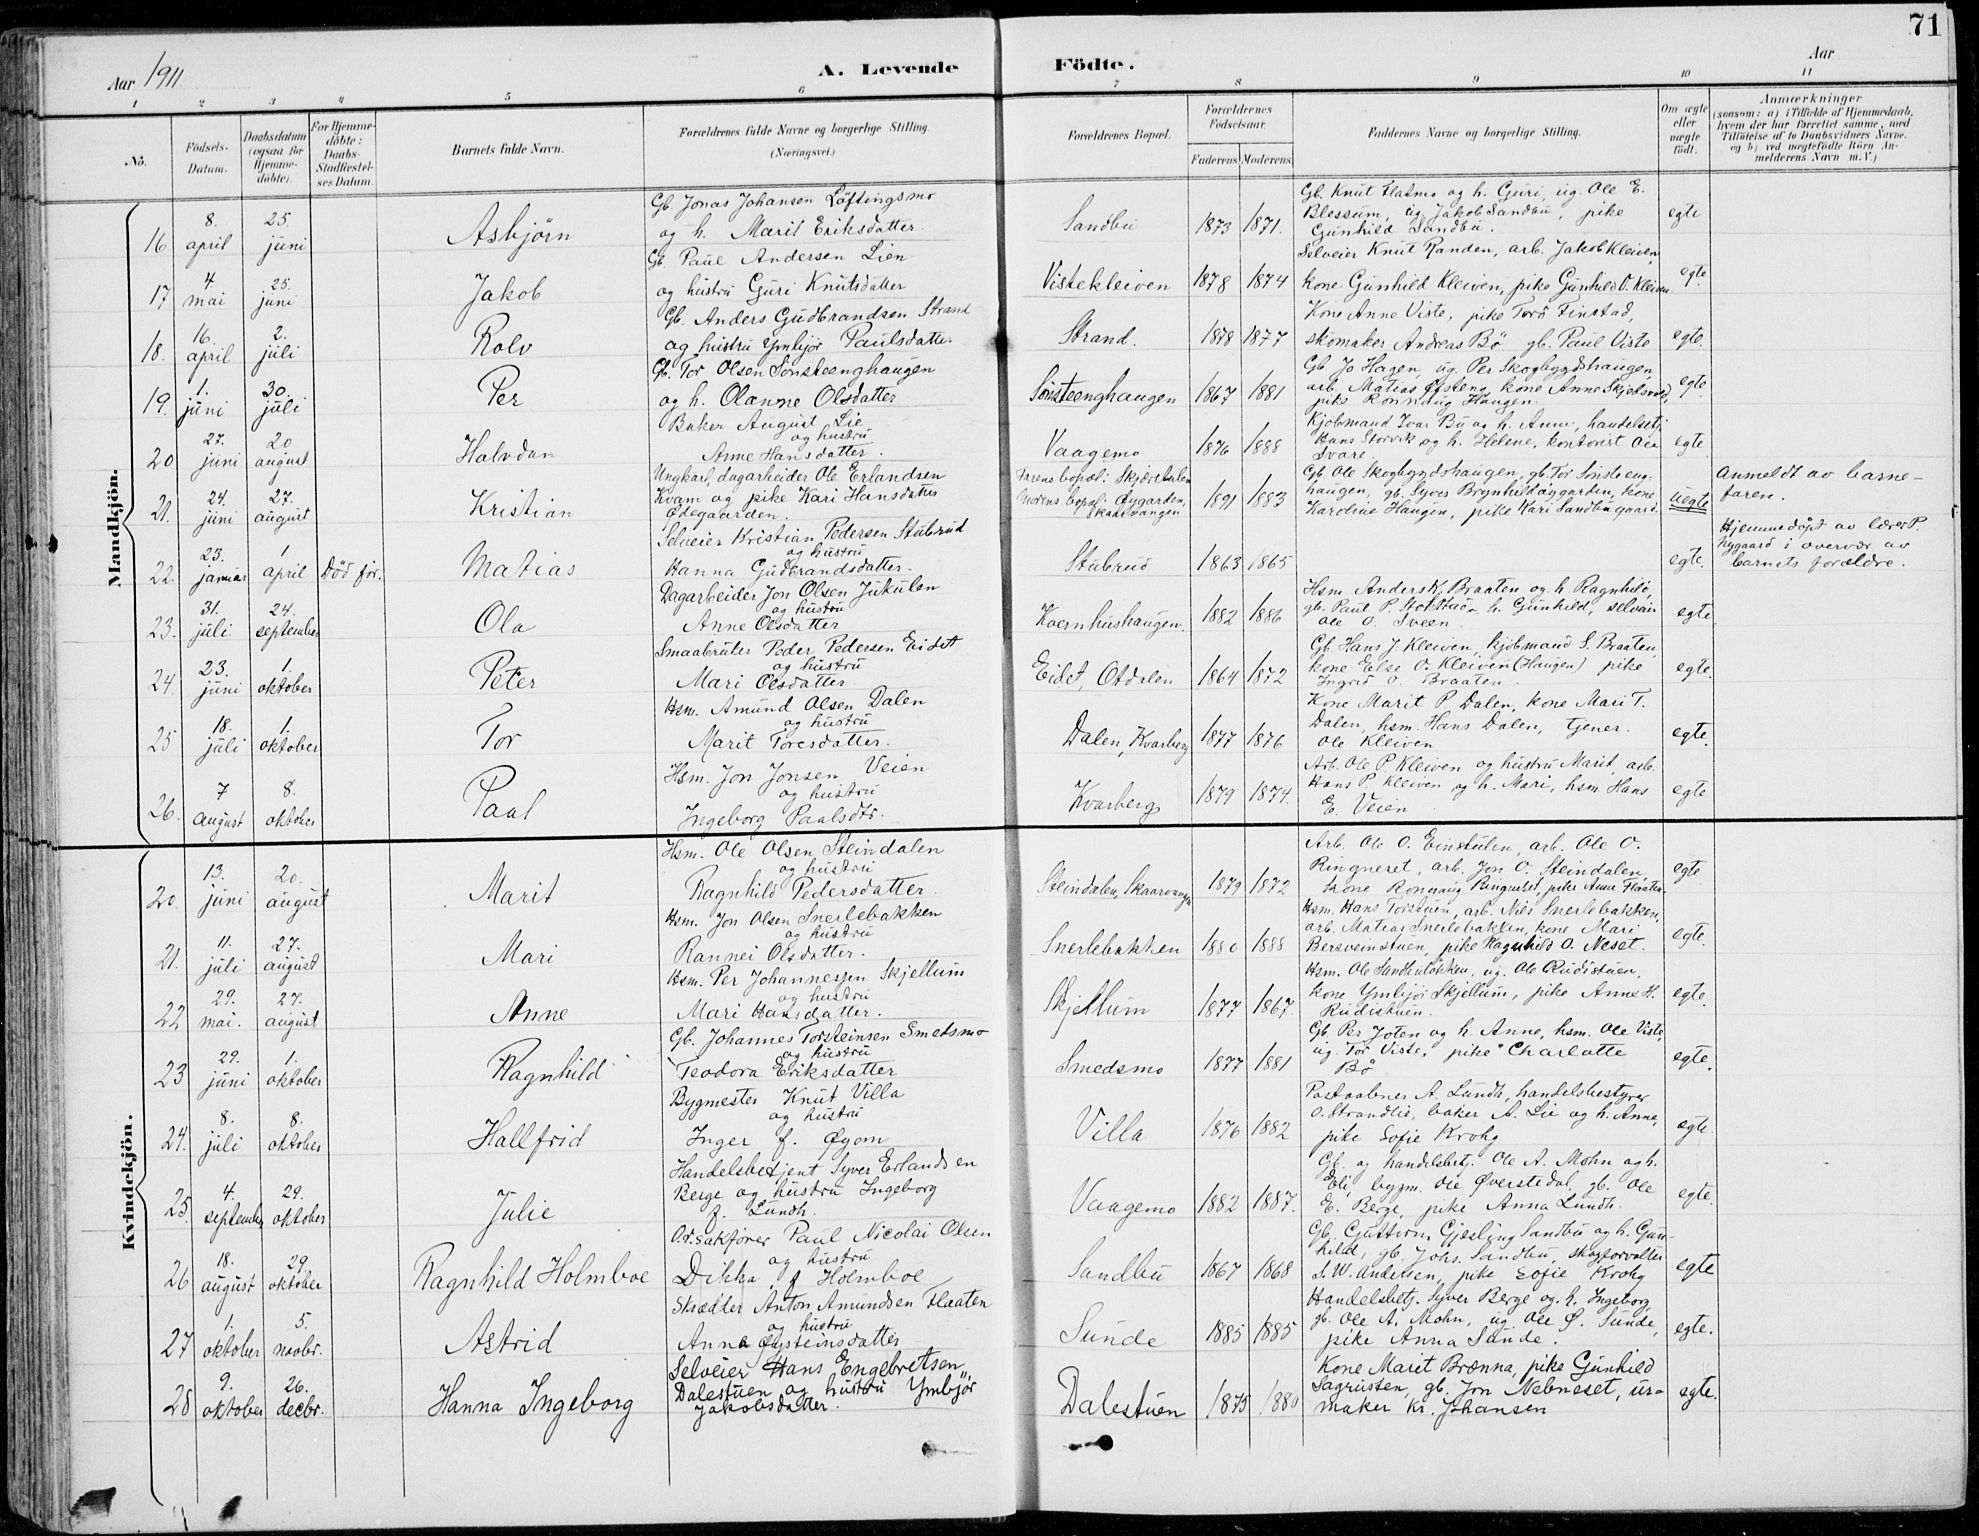 71
Aar 1911
A. Levende
Födte.
Aar
1 2 3 4 5 6 7 8 9 10 11
No.
Födsels-Datum.
Daabsdatum (ogsaa for Hjemmedöbte).
For Hjemmedöbte: Daabs-Stadfæstelses Datum.
Barnets fulde Navn.
Forældrenes fulde Navne og borgerlige Stilling. (Næringsvei.)
Forældrenes Bopæl.
Forældrenes Födselsaar.
Faderens Moderens
Faddernes Navne og borgerlige Stilling.
Om ægte eller uægte födt.
Anmærkninger
(saasom: a) i Tilfælde af Hjemmedaab, hvem der har forrettet samme, med Tilföielse af to Daabsvidners Navne, og b) ved uægtefödte Börn Anmelderens Navn m. V.)
Mandkjön.
16 8. april 25. juni Asbjørn Gb. Jonas Johansen Löftingsmo og h. Marit Eriksdatter. Sandbu 1873 1871. Gb. Knut Flatmo og h. Guri, ug. Ole E. Blessum, ug. Jakob Sandbu, pike Gunhild Sandbu. egte
17 4. mai 25. juni Jakob Gb. Paul Andersen Lien og hustru Guri Knutsdatter Vistekleiven 1878 1874 Selveier Knut Randen, arb. Jakob Kleiven, kone Gunhild Kleiven, pike Gunhild O. Kleiven egte.
18. 16. april 2. juli Rolv Gb. Anders Gudbrandsen Strand og hustru Ymbjør Paulsdatter Strand. 1878 1877 Kone Anne Viste, pike Torö Finstad, skomaker Andreas Bö gb. Paul Viste egte.
19. 1. juni 30. juli Per Gb. Tor Olsen Sønsteenghaugen og h. Olanne Olsdatter Sønsteenghaugen 1867 1881 Gb. Jo Hagen, ug. Per Skogbygdshaugen, arb. Matias Øfsteng, kone Anne Skjelsvold, pike Rønnaug Haugen. egte.
20 27. juni 20 august Halvdan Baker August Lie og hustru Anne Hansdatter. Vaagemo 1876 1888 Kjöbmand Ivar Bu og h. Anne, handelsbetj. Hans Storvik og h. Helene, kontorist Ove Svare. egte
21. 24. juni 27. august Kristian Ungkarl, dagarbeider Ole Erlandsen Kvam og pike Kari Hansdatter Ødegaarden. Farens bopæl: Skjærvestulen Morens bopæl: Øygarden, Skaarvangen 1891 1883 Gb. Ole Skogbygdshaugen, gb. Tor Sönsteenghaugen, gb. Syver Brynhildøygarden, kone Karoline Haugen, pike Kari Sandbugaard. Uegte Anmeldt av barnefaren.
22. 23. januar 1 april Död för. Matias Selveier Kristian Pedersen Stubrud og hustru Hanna Gudbrandsdatter. Stubrud 1863 1865 egte. Hjemmedöpt av lærer P. Nygaard i overvær av barnets forældre.
23. 31. juli 24. september Ola Dagarbeider Jon Olsen Jukulen og hustru Anne Olsdatter Kvernhushaugen. 1882 1886 Hsm. Anders K. Braaten og h. Ragnhild, gb. Paul P. h. Gunhild, selveier Ole O. Sveen. egte
24. 23. juni 1. oktober Peter Smaabruker Peder Pedersen Eidet og hustru Mari Olsdatter. Eidet, Otdalen 1864 1872 Gb. Hans J. Kleiven, kjöbmand S. Braaten, kone Eelse O. Kleiven (Haugen) pike Ingrid O. Braaten. egte.
25 18. juli 1. oktober Tor Hsm. Amund Olsen Dalen og hustru Marit Toresdatter. Dalen, Kvarberg 1877 1876 Kone Marit P. Dalen, kone Mari T. Dalen, hsm. Hans Dalen, tjener. Ole Kleiven egte.
26. 7 august 8. oktober Paal Hsm. Jon Jonsen Veien og hustru Ingeborg Paalsdtr. Kvarberg 1879 1874. Arb. Ole P. Kleiven og hustru Marit, arb. Hans P. Kleiven og h. Mari, hsm Hans E. Veien. egte
Kvindekjön.
20. 13. juni 20. august Marit Hsm. Ole Olsen Steindalen og hustru Ragnhild Pedersdatter Steindalen, Skaarvangen 1879 1872 Arb. Ole O. Einstulen, arb. Ole O. Ringneset, arb. Jon O. Steindalen, kone Rønnaug Ringneset, pike Anne Flaaten. egte
21. 11. juli 27. august Mari Hsm. Jon Olsen Snerlebakken og hustru Rannei Olsdatter. Snerlebakken 1880 1888 Hsm. Hans Torstuen, arb. Nils Snerlebakken, arb. Matias Snerlebakken, kone Mari Bersveinstuen, pike Ragnhild O. Neset. egte.
22 29. mai. 27. august Anne Hsm. Per Johannessen Skjellum og hustru Mari Hansdatter. Skjellum 1877 1867. Hsm. Ole Sandbulökken, ug. Ole Rudistuen, kone Ymbjør Skjellum, pike Anne H. Rudistuen. egte.
23 29. juni 1. oktober Ragnhild Gb. Johannes Torsteinsen Smedsmo og hustru Teodora Eriksdatter Smedsmo 1877 1881 Gb Per Joten og h. Anne, hsm. Ole Viste, ug. Tor Viste, pike Charlotte Bö egte.
24. 8. juli 8. oktober Hallfrid Bygmester Knut Villa og hustru Inger f. Øyom Villa 1876 1882 Postaabner A. Lundh, handelsbestyrer O. Strandlie, baker A. Lie og h. Anne, pike Sofie Krohg egte.
25. 4. september 29. oktober Julie Handelsbetjent Syver Erlandsen Berge og hustru Ingeborg f. Lundh. Vaagemo 1882 1887. Gb. og handelsbetj. Ole A. Mohn og h. Eli, bygm. Ole Øverstedal, gb. Ole E. Berge, pike Anna Lundh. egte.
26 18. august 29. oktober Ragnhild Holmboe O.r.sakförer Paul Nicolai Olsen og hustru Dikka f Holmboe Sandbu 1867 1868 Gb. Guttorm Gjesling Sandbu og h. Gunhild, gb. Johs. Sandbu, skogforvalter S. W. Andersen, pike Sofie Krohg egte
27 1. oktober 5. novbr. Astrid Skrædder Anton Amundsen Flaaten og hustru Anna Øysteinsdatter Sunde 1885 1885 Handelsbetj. Syver Berge og h. Ingeborg, gb. Ole A. Mohn, ug. Ole Ø. Sunde, pike Anna Sunde. egte.
28 9. oktober 26. decbr. Hanna Ingeborg Selveier Hans Engebretsen Dalestuen og hustru Ymbjør Jakobsdatter. Dalestuen 1875 1880 Kone Marit Brænna, pike Gunhild Sagrusten, gb. Jon Nebneset, urmaker Kr. Johansen egte.